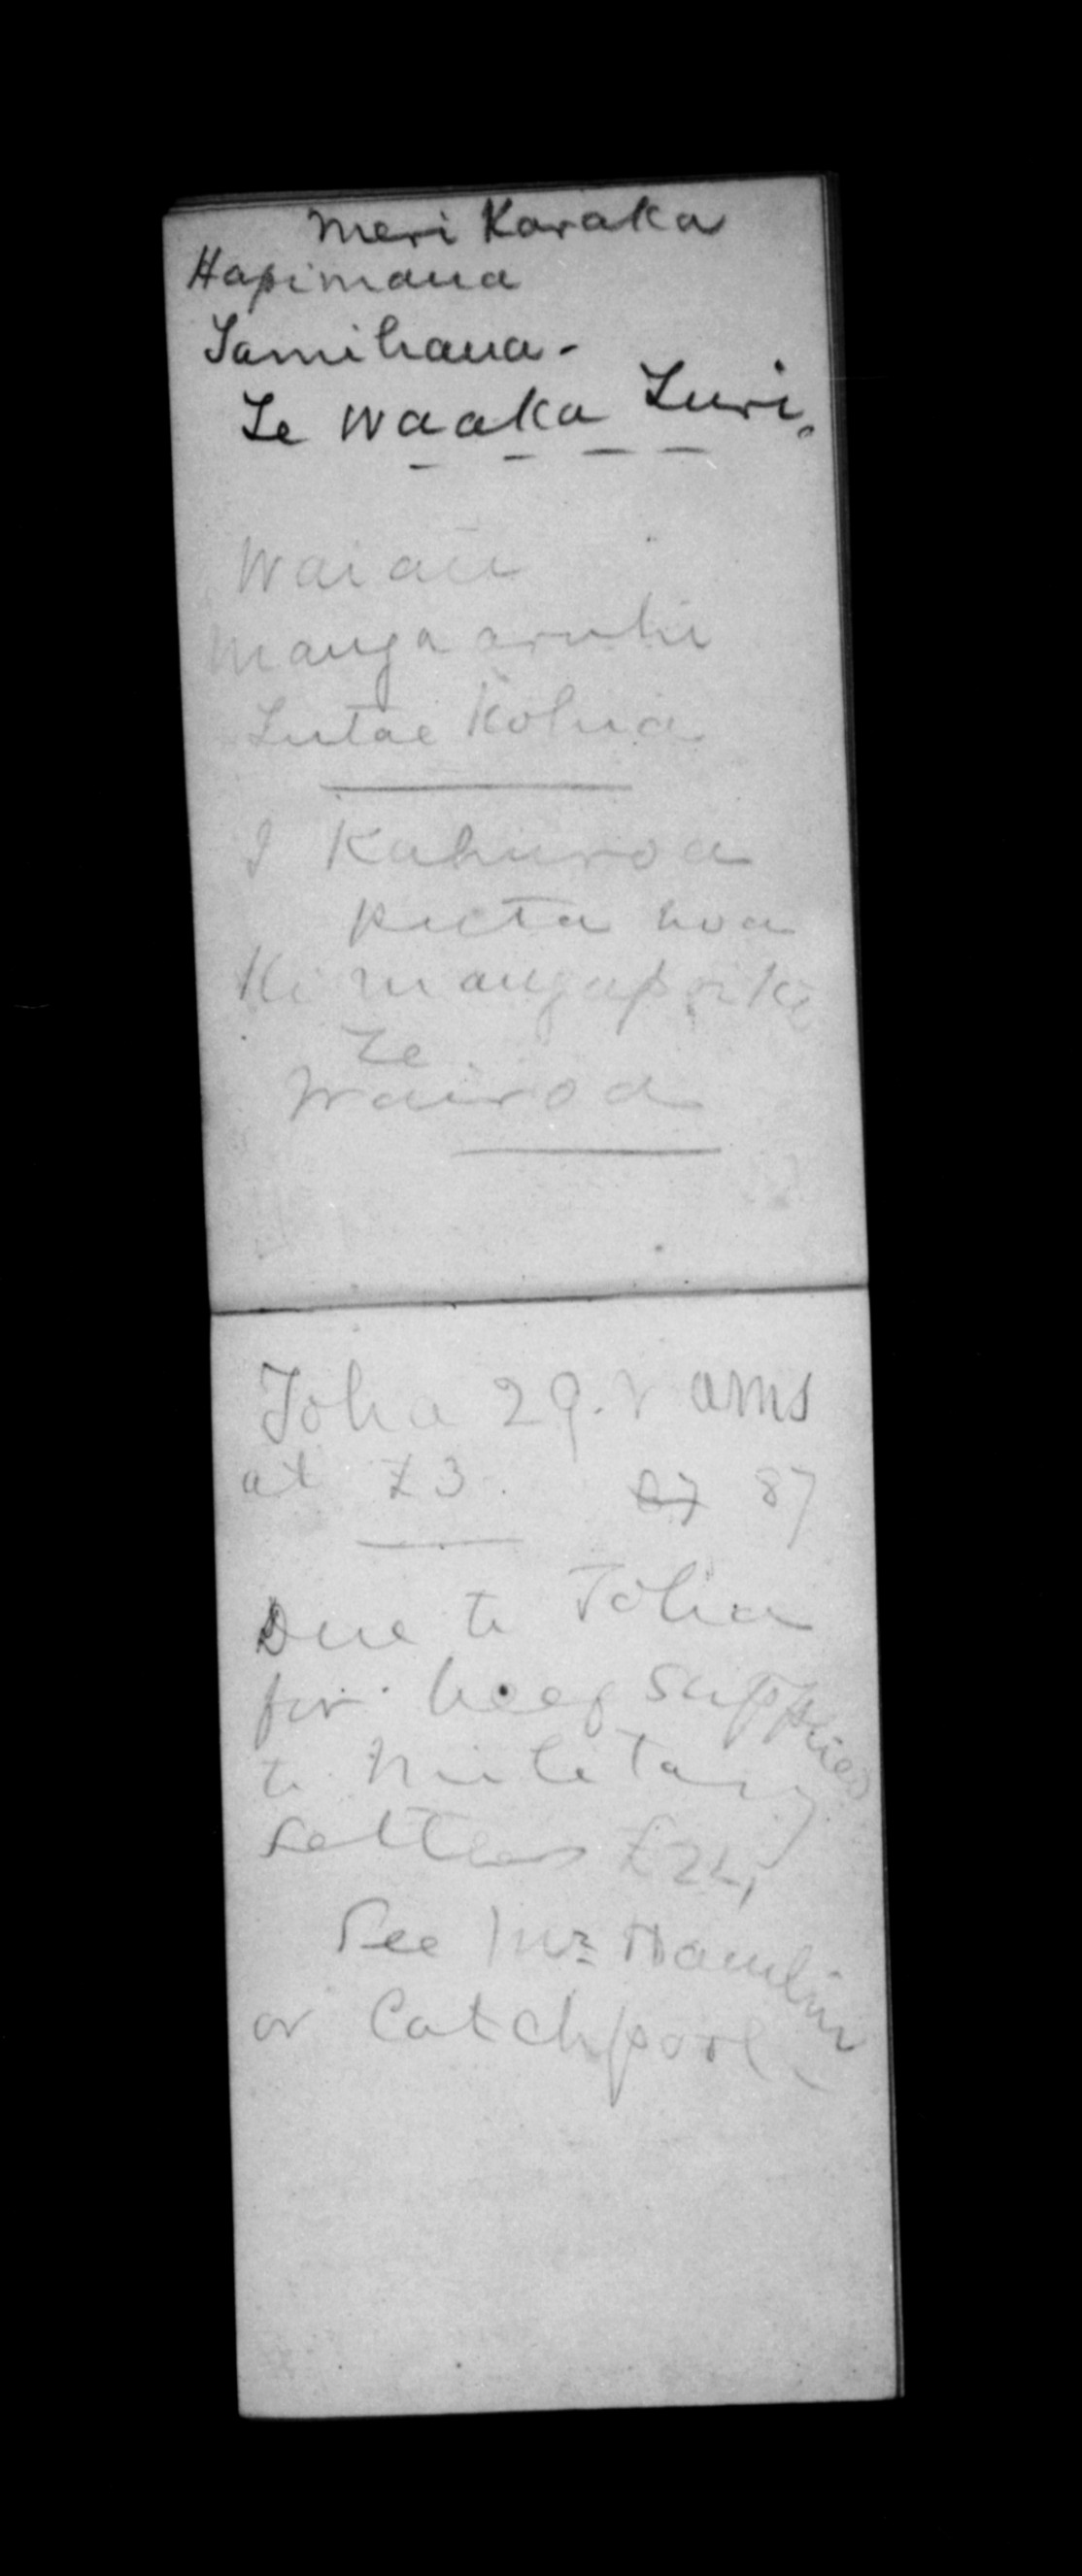 Meri Karaka
Hapimana
Tamihana -
Te Waaka Turi.
Waiau
Mangaaruhe
Tutae Kohua
I Kahuroa
puta noa
Ki mangapoike
Te
Wairoa
Toha 29. rams
at £3. 87 87
Due to Toha
for beef supplies
to military
settlers £24,
See Mr Hamlin
or Catchpool -